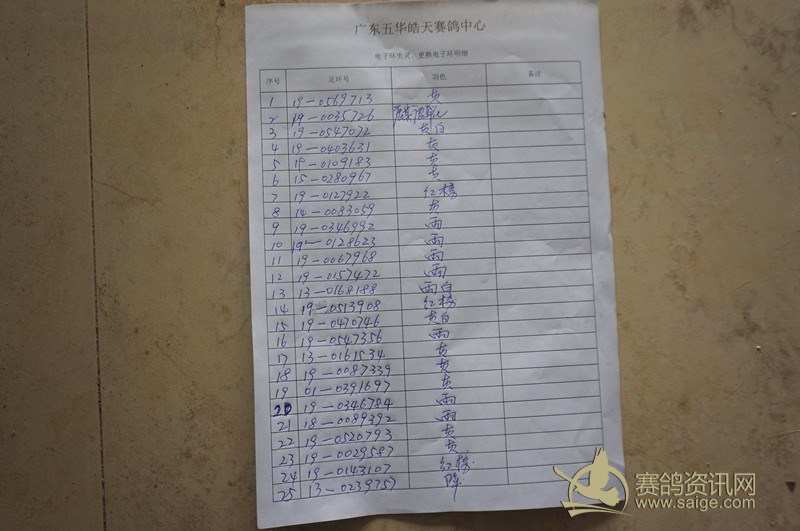 广东五华皓天赛鸽中心
电子环失灵、更换电子环明细
序号 足环号 羽色 备注
1 19-0569713
2 19-0035726
3 19-0547072
4 19-0403631
5 19-0109183
6 15-0280967
7 19-0127922 红楞
8 14-0083059
9 19-0346992 雨
10 19-0128623 雨
11 19-0067968 雨
12 19-0157472 雨
13 13-0168188 雨白
14 19-0513908 红楞
15 19-0470746
16 19-0547356 雨
17 13-0161534
18 19-0087339
19 01-0391697
20 19-0346784 雨
21 18-0089392 雨
22 19-0520793
23 19-0029587
24 19-0143107 红楞
25 13-0239757
赛鸽资讯网
www.saige.com